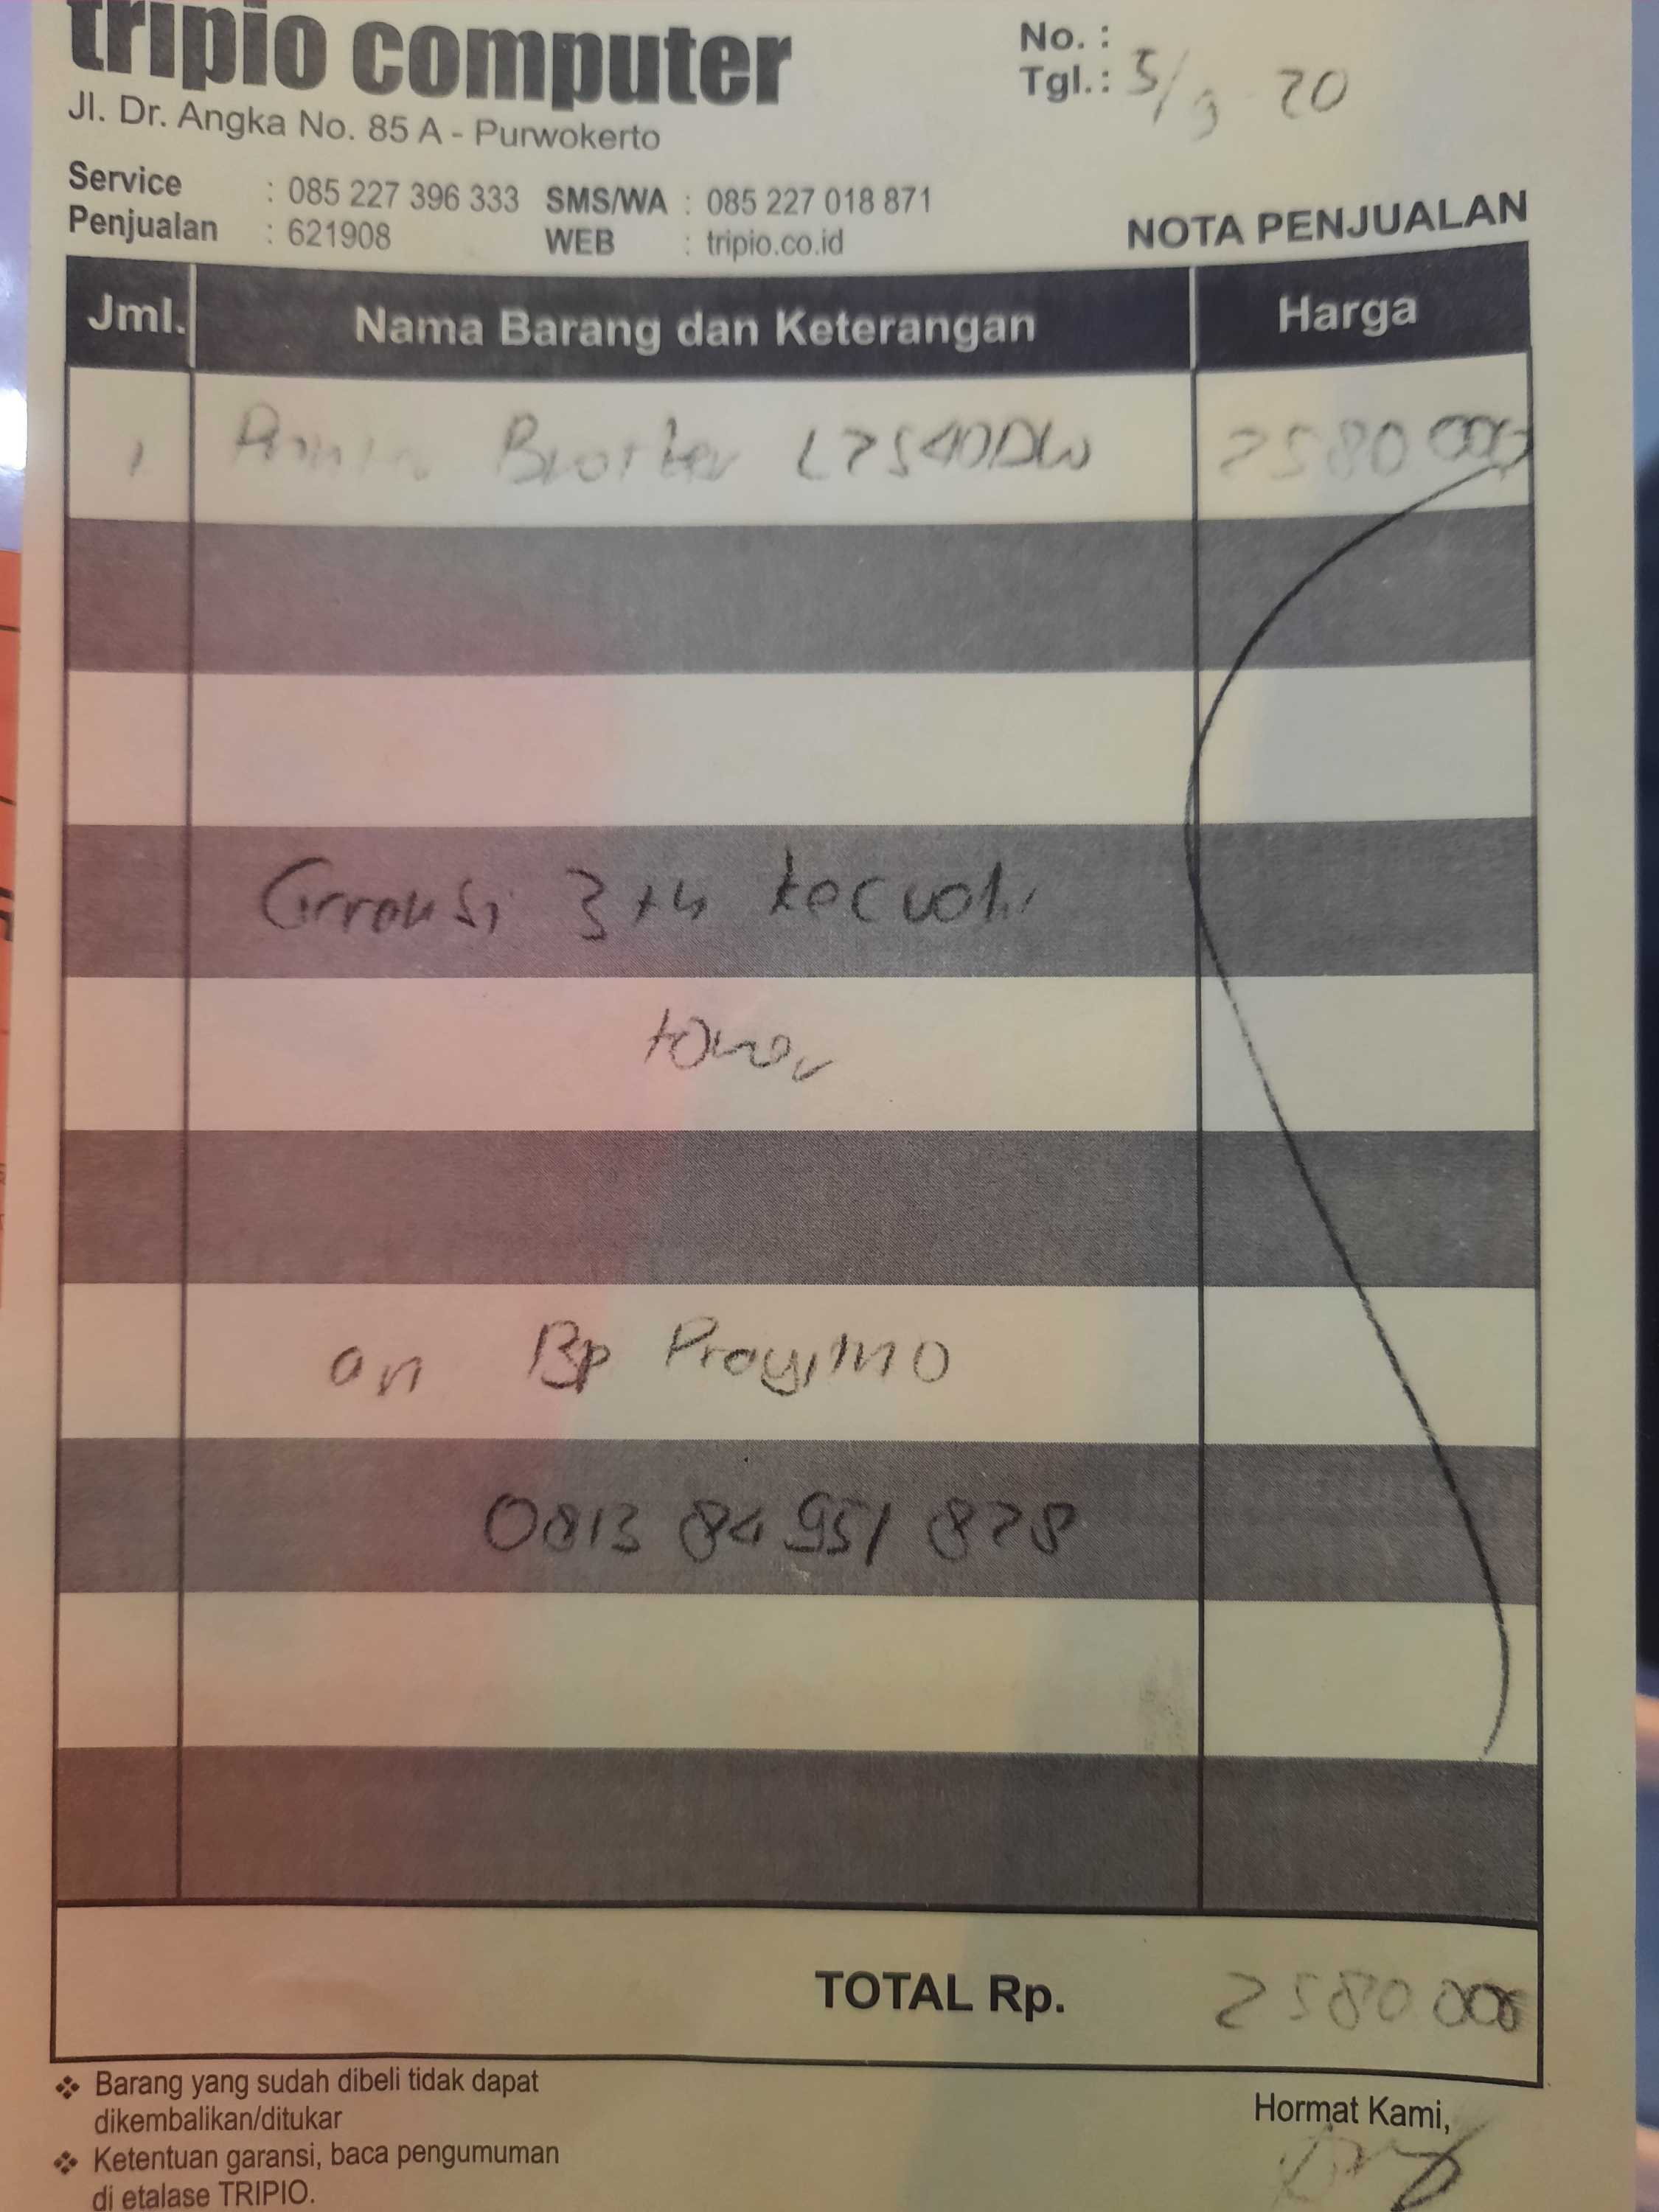 tripio computer
No. :
Tgl. : 5/9 20
Jl. Dr. Angka No. 85 A - Purwokerto
Service : 085 227 396 333 SMS/WA : 085 227 018 871
Penjualan : 621908 WEB : tripio.co.id
NOTA PENJUALAN
Jml. Nama Barang dan Keterangan Harga
1 Printer Brother L2540DW 2580 000
Garansi 3 th kecuali
toner
an Bp Prayitno
0813 84 951 828
TOTAL Rp. 2580.000
❖ Barang yang sudah dibeli tidak dapat
dikembalikan/ditukar
Hormat Kami,
❖ Ketentuan garansi, baca pengumuman
di etalase TRIPIO.